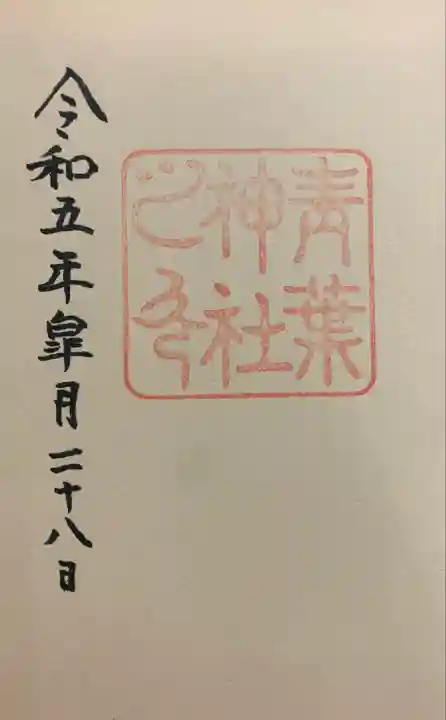 青葉
神社
之印
令和五年皐月二十八日